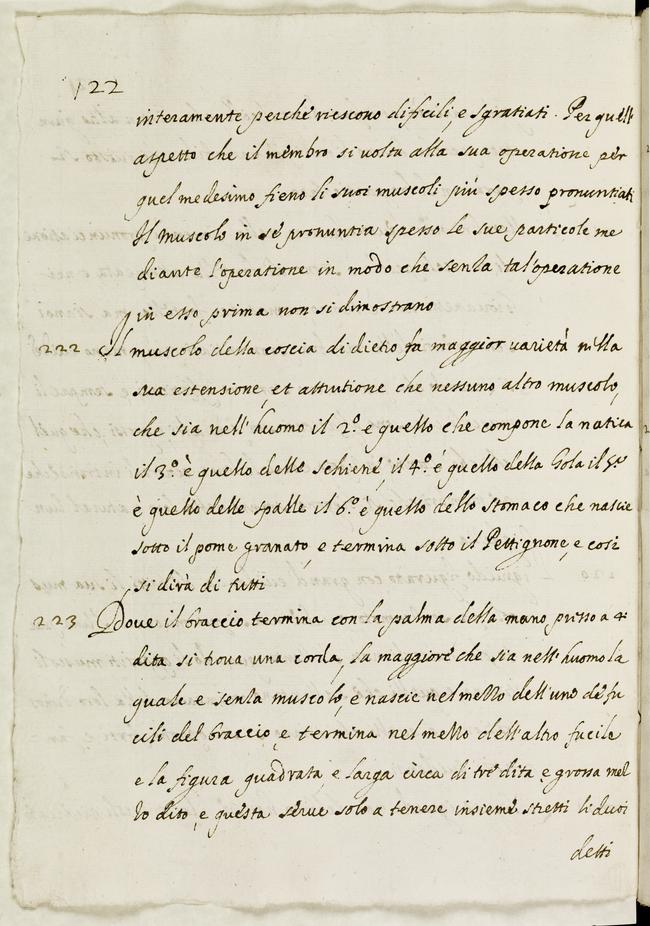 122
interamente perche riescono dificili, e sgratiati. Per quell'
aspetto che il membro si volta alla sua operatione per
quel medesimo fieno li suoi muscoli più spesso pronuntiati
Il muscolo in sè pronuntia spesso le sue particole me
diante l'operatione in modo che senza tal'operatione
in esso prima non si dimostrano
222 Il muscolo della coscia di dietro fa maggior varietà nella
sua estensione, et attrutione che nessuno altro muscolo,
che sia nell' huomo il 2.º e quello che compone la natica
il 3.º è quello delle schiene, il 4.º é quello della Gola il 5.º
è quello delle spalle il 6.º è quello dello stomaco che nascie
sotto il pome granato, e termina sotto il Pettignone, e cosi
si dirà di tutti
223 Doue il braccio termina con la palma della mano, presso a 4
dita si troua una corda, la maggiore che sia nell' huomo la
quale e senza muscolo, e nascie nel mezzo dell'uno de fu
cili del braccio, e termina nel mezzo dell'altro fucile
e la figura quadrata, e larga circa di tre dita, e grossa mez
zo dito, e questa serue solo a tenere insieme stretti li duoi
detti